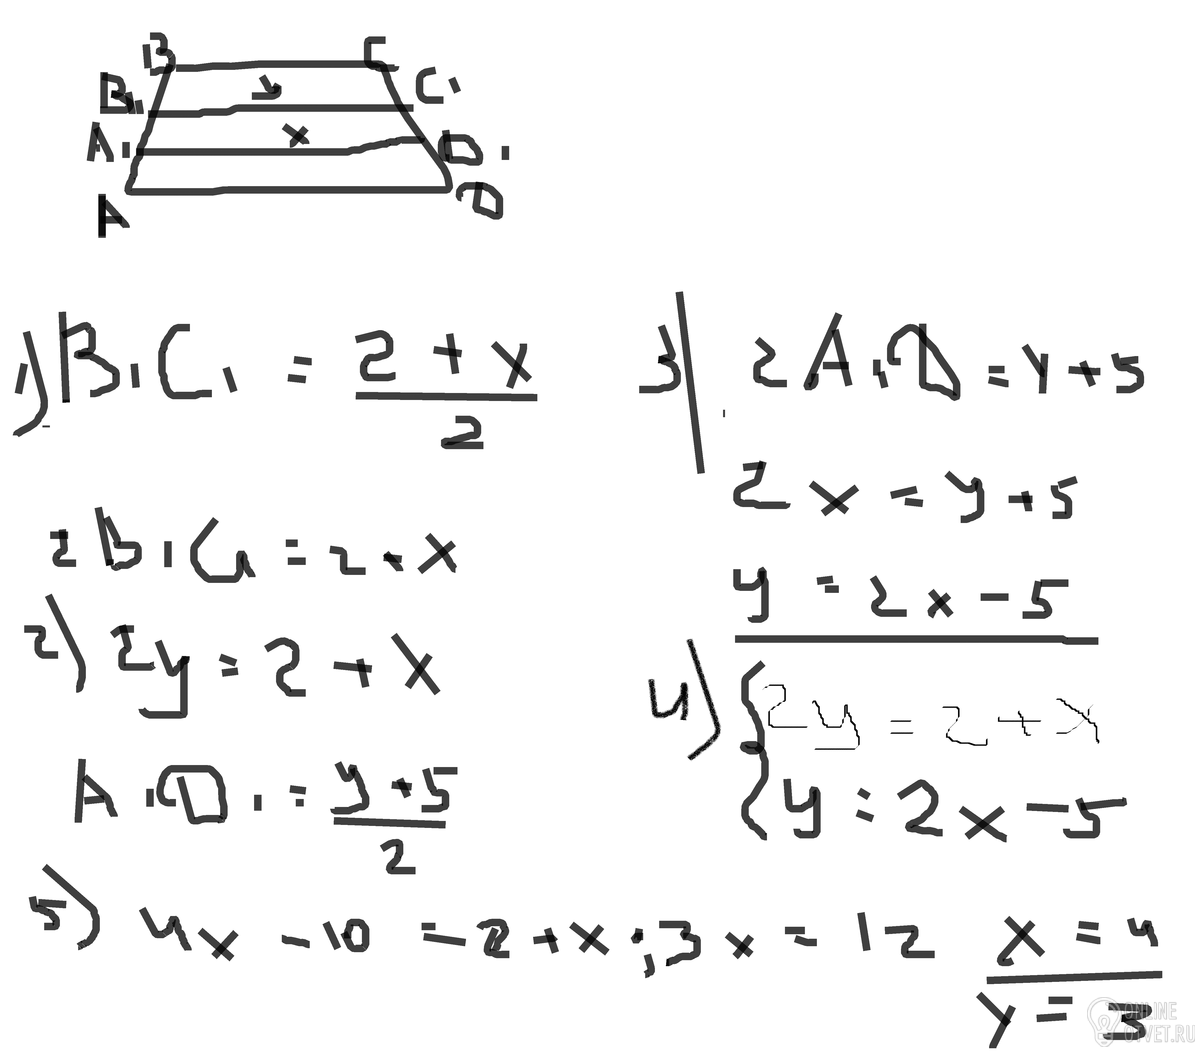 B C
B₁ y C₁
A₁ x D₁
A D
1) B₁C₁ = (2 + x)/2
2B₁C₁ = 2 + x
2) 2y = 2 + x
A₁D₁ = (y + 5)/2
3) 2A₁D = y + 5
2x = y + 5
y = 2x - 5
4) { 2y = 2 + x
y = 2x - 5
5) 4x - 10 = 2 + x ; 3x = 12 x = 4
y = 3
ONLINE
OTVET.RU